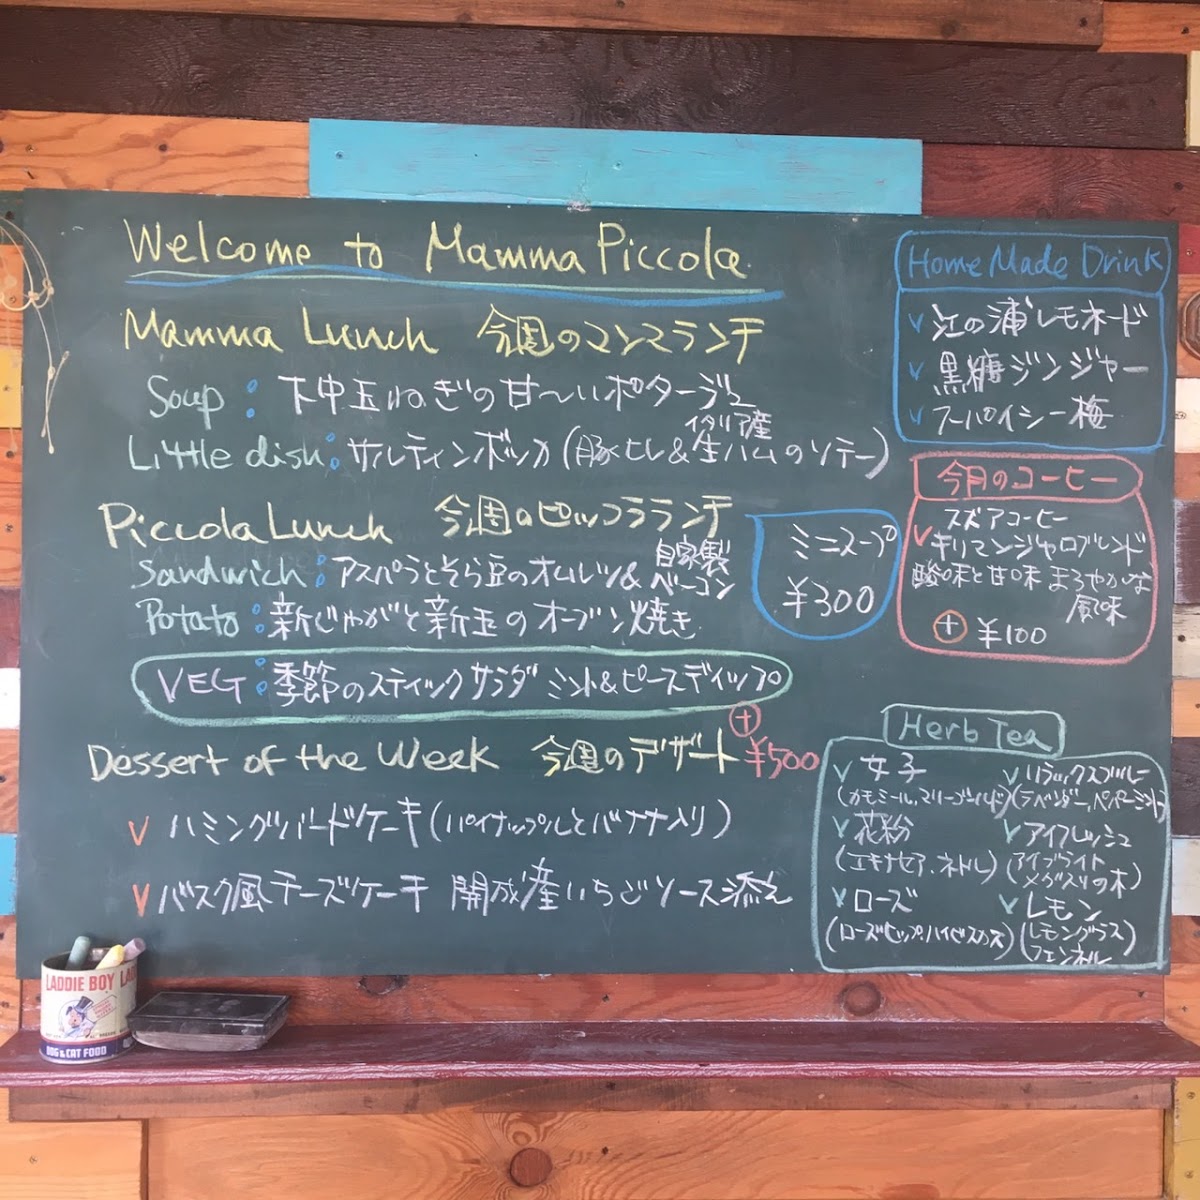 Welcome to Mamma Piccola
Mamma Lunch 今週のマンマランチ
Soup : 下中玉ねぎの甘〜いポタージュ
Little dish : サルティンボッカ(豚ヒレ&イタリア産生ハムのソテー)
Piccola Lunch 今週のピッコラランチ
Sandwich : アスパラとそら豆のオムレツ&自家製ベーコン
Potato : 新じゃがと新玉のオーブン焼き
VEG : 季節のスティックサラダ ミント&ピースディップ
ミニスープ
¥300
Dessert of the Week 今週のデザート + ¥500
ハミングバードケーキ(パイナップルとバナナ入り)
バスク風チーズケーキ 開成産いちごソース添え
Home Made Drink
江の浦レモネード
黒糖ジンジャー
スーパイシー梅
今月のコーヒー
スズアコーヒー
キリマンジャロブレンド
酸味と甘味 まろやかな
風味
+ ¥100
Herb Tea
女子
(カモミール、マリーゴールド)
花粉
(エキナセア、ネトル)
ローズ
(ローズヒップ、ハイビスカス)
リラックスブルー
(ラベンダー、ペパーミント)
アイフレッシュ
(アイブライト
メグスリの木)
レモン
(レモングラス
フェンネル)
LADDIE BOY
DOG & CAT FOOD